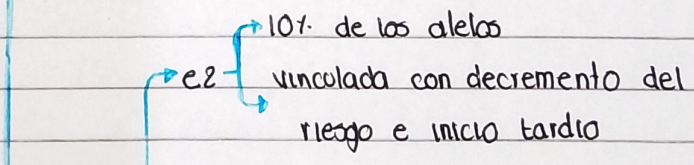 10%. de los alelos
e2 vinculada con decremento del
riesgo e inicio tardio